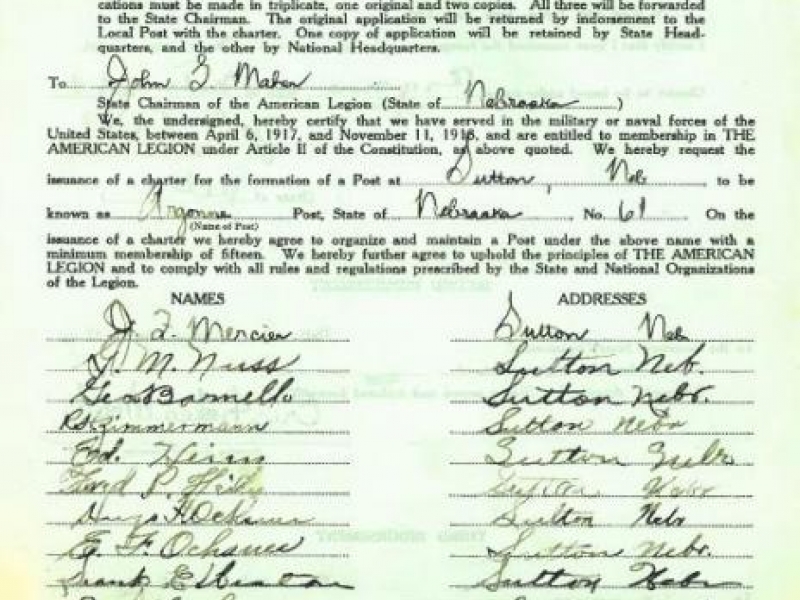 cations must be made in triplicate, one original and two copies. All three will be forwarded
to the State Chairman. The original application will be returned by indorsement to the
Local Post with the charter. One copy of application will be retained by State Head-
quarters, and the other by National Headquarters.
To John G. Maher
State Chairman of the American Legion (State of Nebraska)
We, the undersigned, hereby certify that we have served in the military or naval forces of the
United States, between April 6, 1917, and November 11, 1918, and are entitled to membership in THE
AMERICAN LEGION under Article II of the Constitution, as above quoted. We hereby request the
issuance of a charter for the formation of a Post at Sutton, Neb to be
known as Argonne Post, State of Nebraska, No. 61 On the
(Name of Post)
issuance of a charter we hereby agree to organize and maintain a Post under the above name with a
minimum membership of fifteen. We hereby further agree to uphold the principles of THE AMERICAN
LEGION and to comply with all rules and regulations prescribed by the State and National Organizations
of the Legion.
NAMES ADDRESSES
J. F. Mercier Sutton Neb
J. M. Nuss Sutton Neb.
Geo Sutton Nebr.
R.S. Zimmermann Sutton Nebr
Ed. Sutton Nebr
Floyd P. Sutton Nebr
Sutton Nebr
E. F. Ochsner Sutton Nebr.
Frank E Sutton Nebr